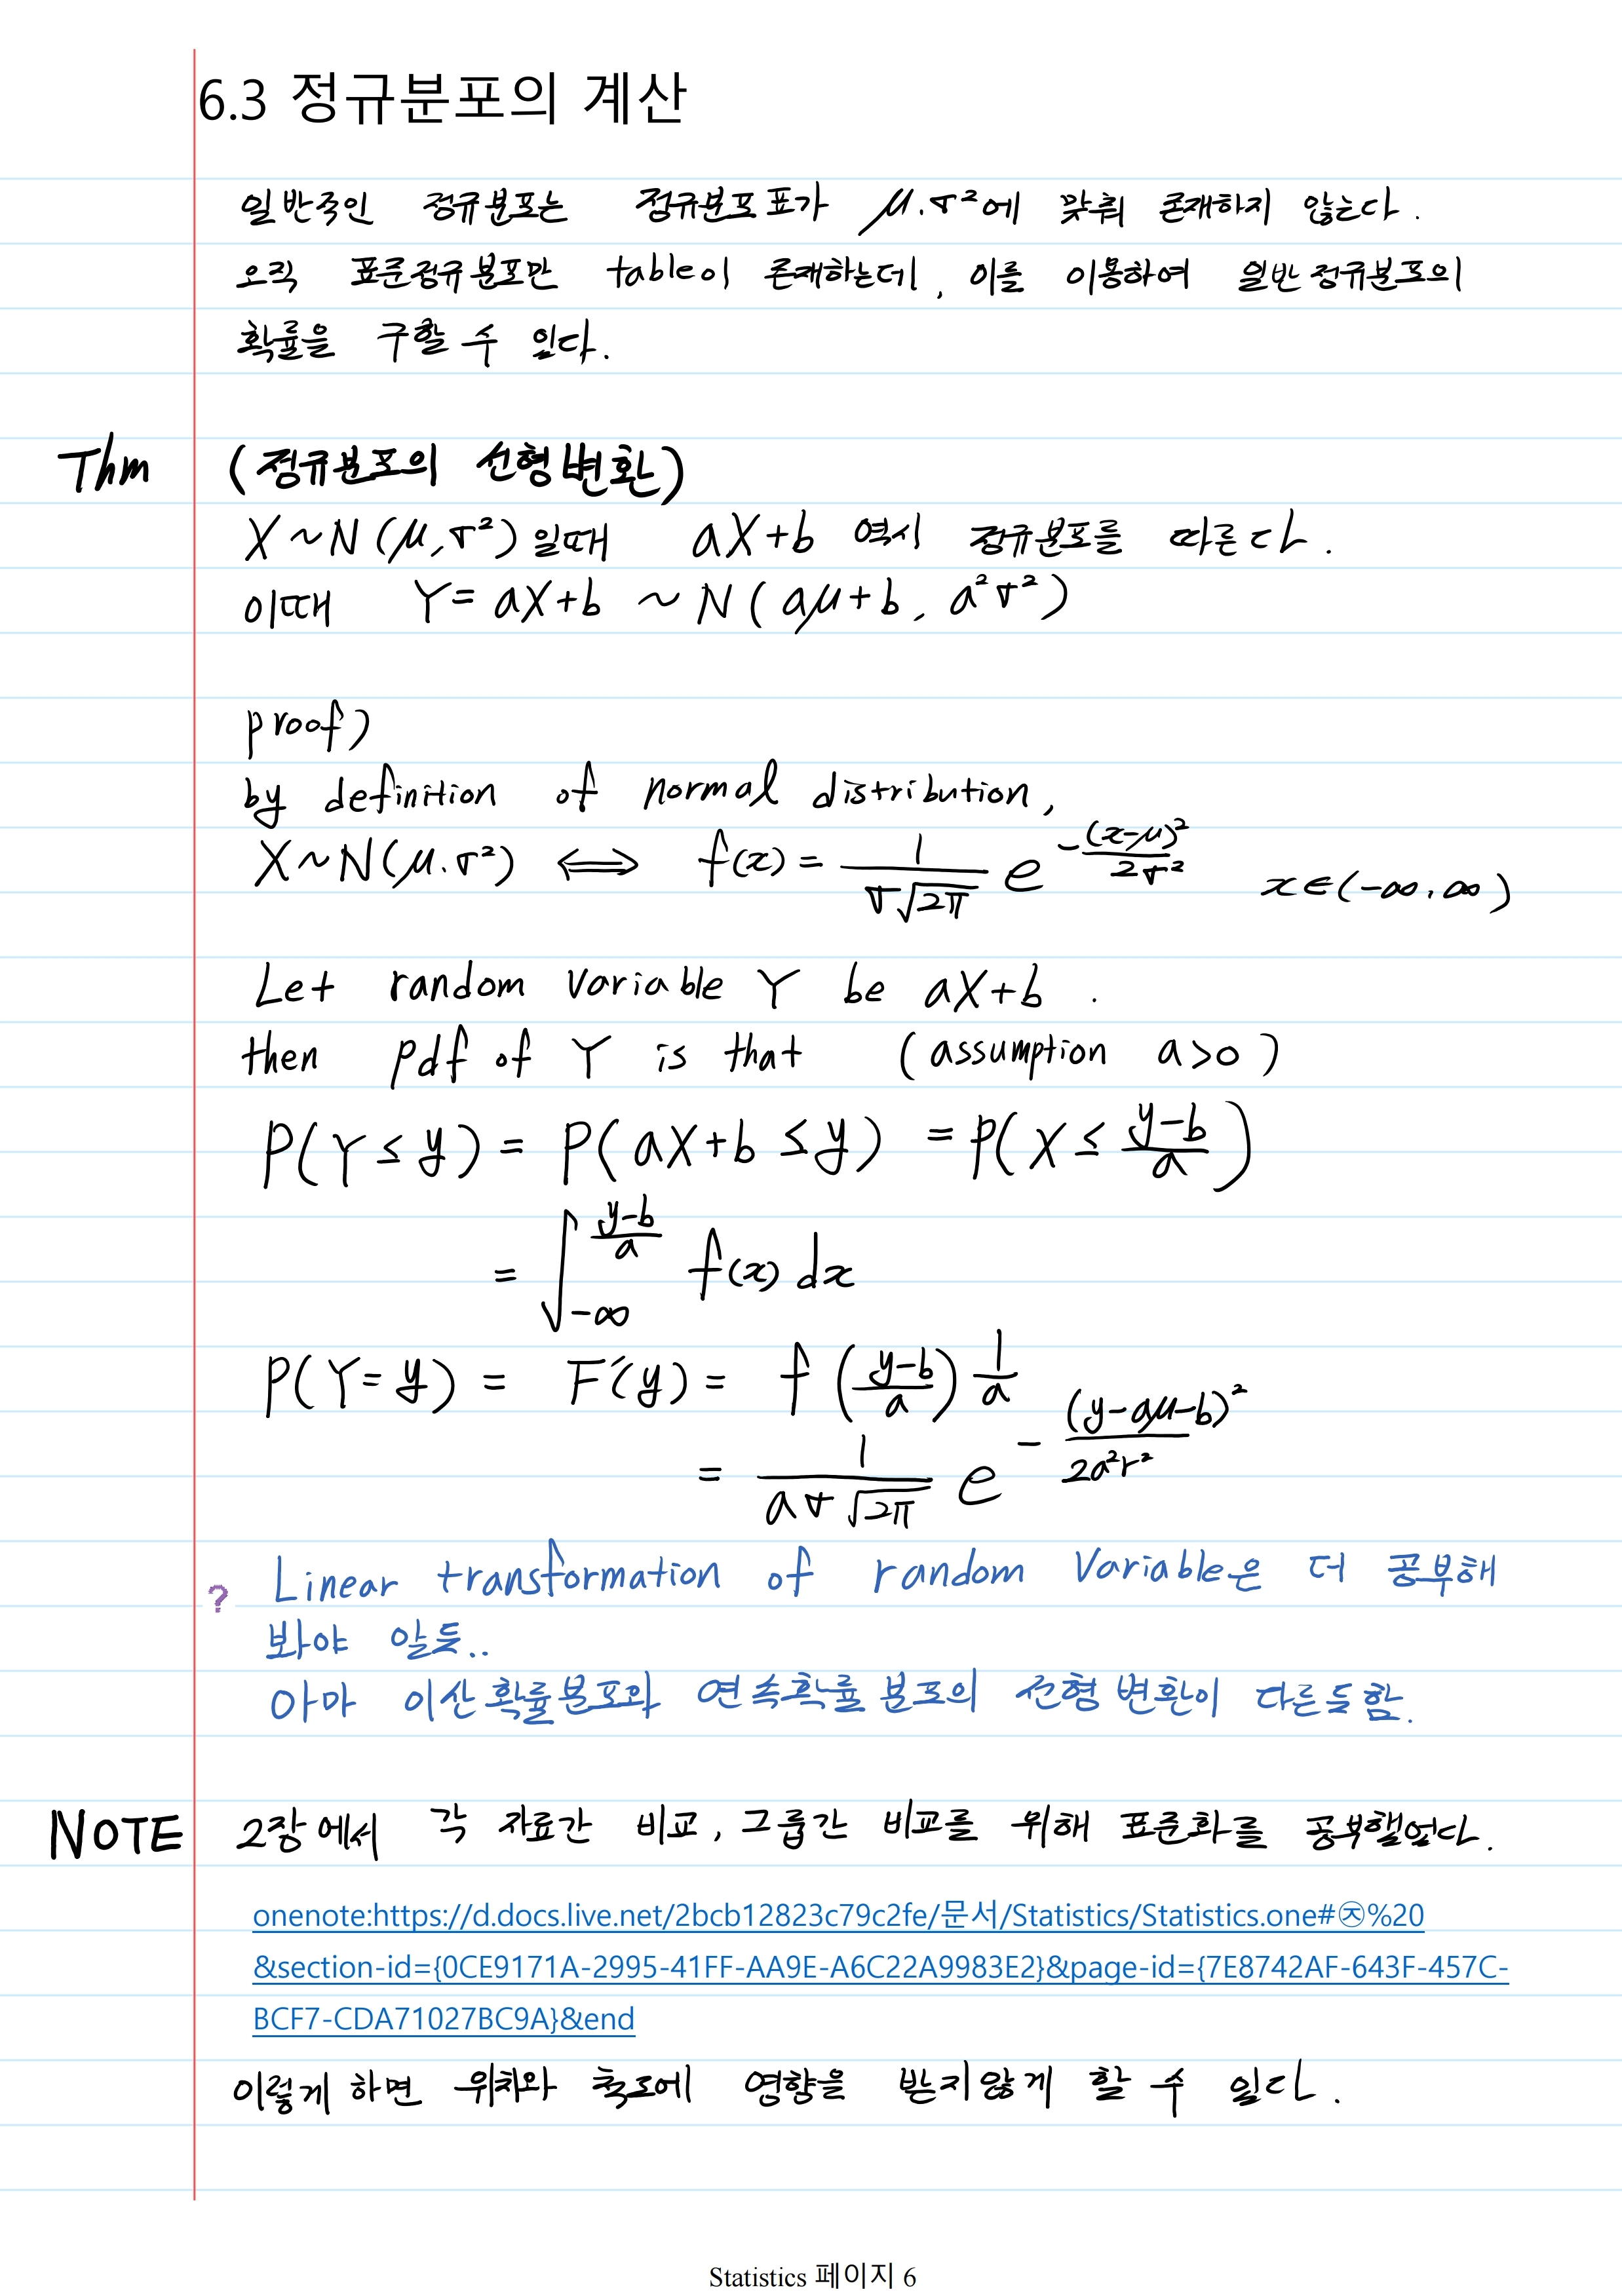 6.3 정규분포의 계산
일반적인 정규분포는 정규분포표가 μ, σ²에 맞춰 존재하지 않는다.
오직 표준정규분포만 table이 존재하는데, 이를 이용하여 일반정규분포의
확률을 구할 수 있다.
Thm (정규분포의 선형변환)
X ~ N(μ, σ²) 일때 aX+b 역시 정규분포를 따른다.
이때 Y = aX+b ~ N(aμ+b, a²σ²)
proof)
by definition of normal distribution,
X ~ N(μ, σ²) ⟺ f(x) = 1/(σ√(2π)) e^(-(x-μ)²/(2σ²)) x ∈ (-∞, ∞)
Let random variable Y be aX+b.
then pdf of Y is that (assumption a>0)
P(Y ≤ y) = P(aX+b ≤ y) = P(X ≤ (y-b)/a)
= ∫_{-∞}^{(y-b)/a} f(x) dx
P(Y=y) = F'(y) = f((y-b)/a) 1/a
= 1/(aσ√(2π)) e^(-(y-aμ-b)²/(2a²σ²))
? Linear transformation of random variable은 더 공부해
봐야 알듯..
아마 이산확률분포와 연속확률분포의 선형변환이 다른듯함.
NOTE 2장에서 각 자료간 비교, 그룹간 비교를 위해 표준화를 공부했었다.
onenote:https://d.docs.live.net/2bcb12823c79c2fe/문서/Statistics/Statistics.one#㉨%20
&section-id={0CE9171A-2995-41FF-AA9E-A6C22A9983E2}&page-id={7E8742AF-643F-457C-
BCF7-CDA71027BC9A}&end
이렇게 하면 위치와 척도에 영향을 받지않게 할 수 있다.
Statistics 페이지 6